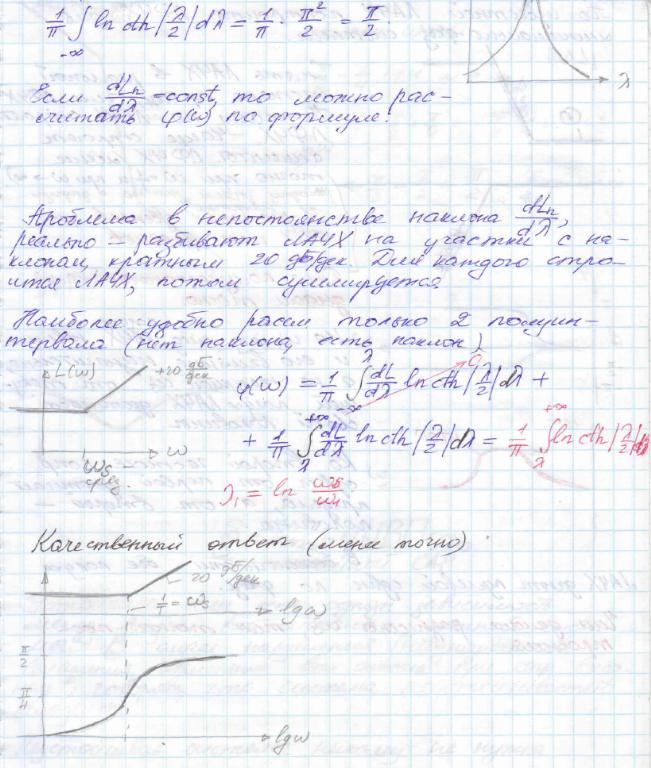 1/π ∫_{-∞} ln cth |λ/2| dλ = 1/π · π²/2 = π/2.
λ
Если dLn/dλ = const, то можно рас-
считать φ(ω) по формуле.
Проблема в непостоянстве наклона dLn/dλ,
реально – разбивают ЛАЧХ на участки с на-
клонам, кратным 20 дБ/дек. Для каждого стро-
ится ЛАЧХ, потом суммируется.
Наиболее удобно рассм только 2 полуин-
тервала (нет наклона, есть наклон)
L(ω) +20 дБ/дек
φ(ω) = 1/π ∫_{-∞}^{λ} dL/dλ ln cth |λ/2| dλ +
0
+ 1/π ∫_{λ}^{+∞} dL/dλ ln cth |λ/2| dλ = 1/π ∫_{λ}^{+∞} ln cth |λ/2| dλ
ω
ωs
λ₁ = ln
Качественный ответ (менее точно)
20 дБ/дек
1/T = ωs
lgω
π/2
π/4
lgω